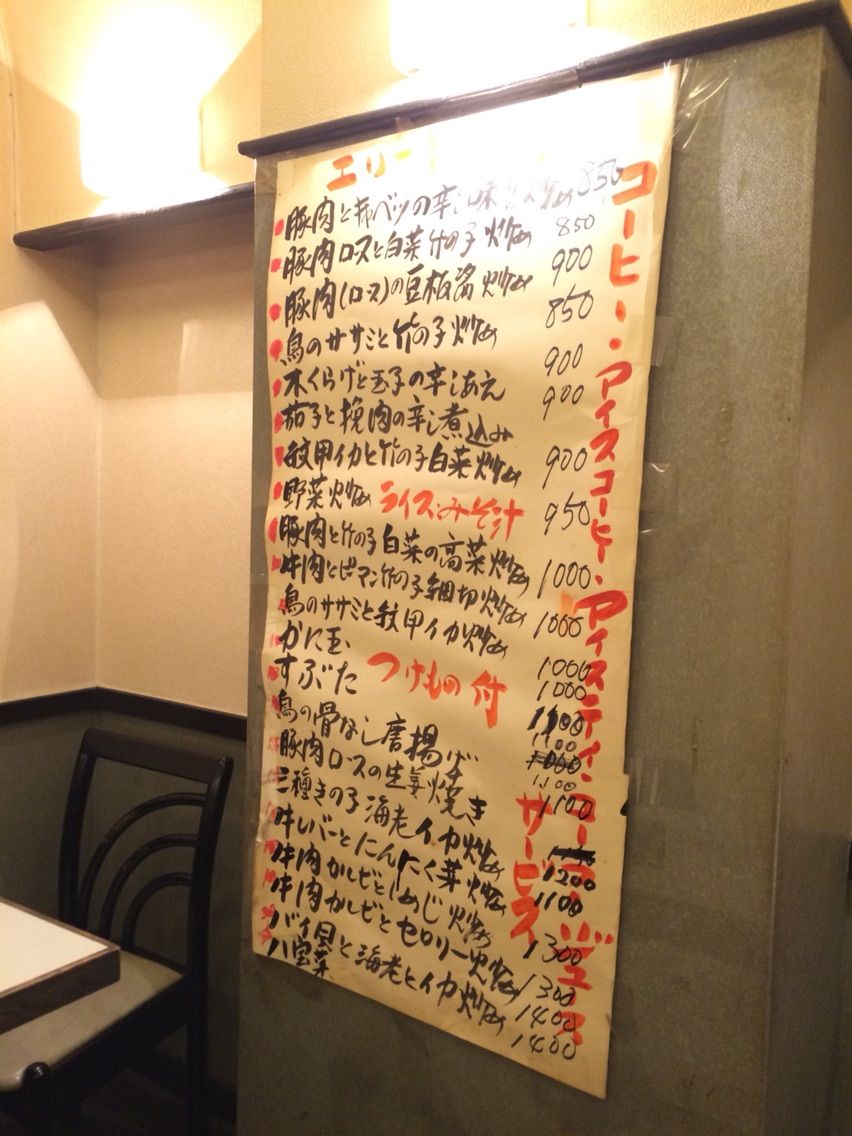 エリー
豚肉とキャベツの辛し味 炒め 850
豚肉ロースと白菜竹の子炒め 850
豚肉(ロース)の豆板醤炒め 900
鳥のササミと竹の子炒め 850
木くらげと玉子の辛しあえ 900
茄子と挽肉の辛し煮込み 900
紋甲イカと竹の子白菜炒め 900
野菜炒め ライス・みそ汁 950
豚肉と竹の子白菜の高菜炒め 1000
牛肉とピーマン竹の子細切炒め 1000
鳥のササミと紋甲イカ炒め 1000
かに玉 1000
すぶた つけもの付 1100
鳥の骨なし唐揚げ 1100
豚肉ロースの生姜焼き 1100
三種きの子海老イカ炒め 1100
牛レバーとにんにく菜炒め 1200
1100
牛肉カルビとしめじ炒め 1300
牛肉カルビとセロリー炒め 1300
バイ貝と海老とイカ炒め 1400
八宝菜 1400
コーヒー・アイスコーヒー・アイスティ・コーラ・ジュース
サービス